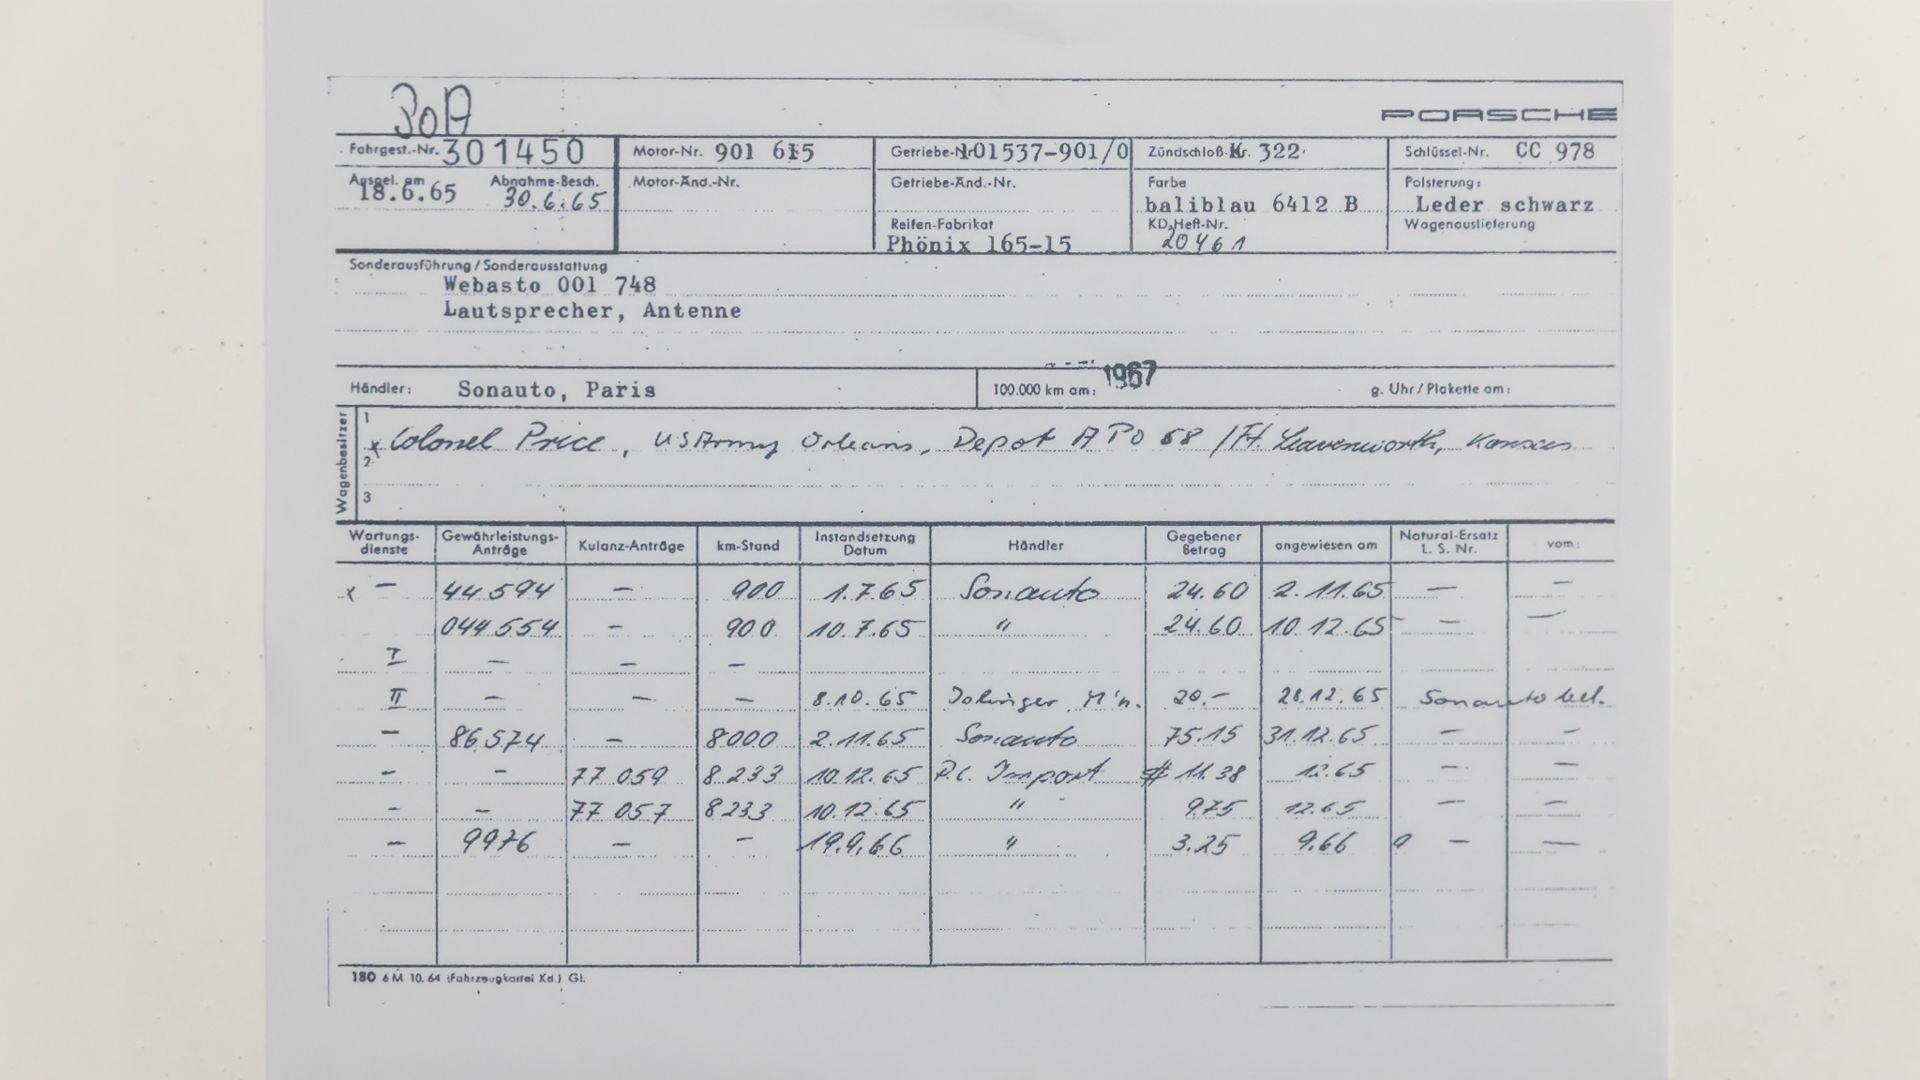 PORSCHE
Fahrgest.-Nr. 301450 Motor-Nr. 901 615 Getriebe-Nr. 101537-901/0 Zündschloß-Nr. 322 Schlüssel-Nr. CC 978
Ausgel. am Abnahme-Besch. Motor-Änd.-Nr. Getriebe-Änd.-Nr. Farbe Polsterung:
18.6.65 30.6.65 baliblau 6412 B Leder schwarz
Reifen-Fabrikat KD-Heft-Nr. Wagenauslieferung
Phönix 165-15 20461
Sonderausführung/Sonderausstattung
Webasto 001 748
Lautsprecher, Antenne
Händler: Sonauto, Paris 100.000 km am: 1967 g. Uhr/Plakette am:
Wagenbesitzer
1
x Colonel Price, US Army Orleans, Depot APO 58 / Ft. Leavenworth, Kansas
2
3
Wartungs-dienste Gewährleistungs-Anträge Kulanz-Anträge km-Stand Instandsetzung Datum Händler Gegebener Betrag angewiesen am Natural-Ersatz L. S. Nr. vom:
x - 44594 - 900 1.7.65 Sonauto 24.60 2.11.65 - -
044554 - 900 10.7.65 " 24.60 10.12.65 - -
I - - -
II - - - 8.10.65 20.- 28.12.65 Sonauto
- 86574 - 8000 2.11.65 Sonauto 75.15 31.12.65 - -
- - 77 059 8233 10.12.65 P.C. Import # 11.38 12.65 - -
- - 77 057 8233 10.12.65 " 9.75 12.65 - -
- 9976 - - 19.9.66 " 3.25 9.66 - -
180 6 M 10. 64 (Fahrzeugkartei Kd.) Gl.